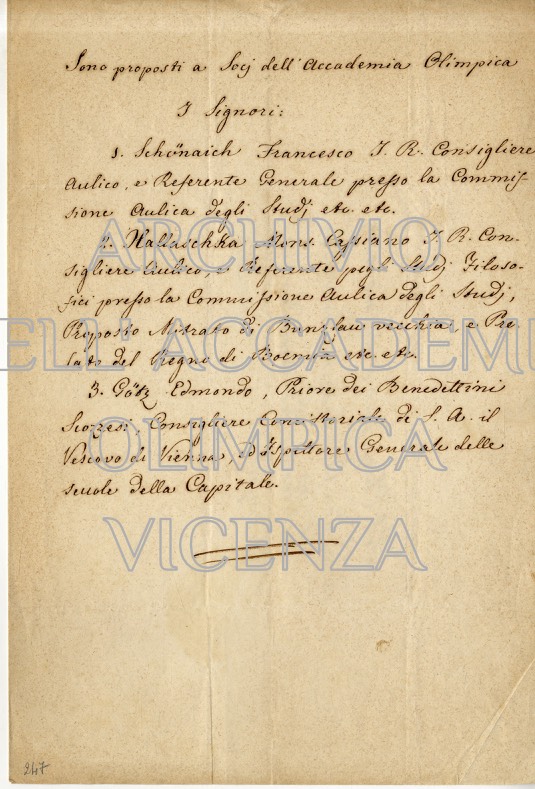 Sono proposti a Socj dell'Accademia Olimpica
I Signori:
1. Schönaich Francesco I. R. Consigliere
Aulico, e Referente Generale presso la Commis-
sione Aulica degli Studj etc. etc.
2. Hallaschka Mons. Cassiano I. R. Con-
sigliere Aulico, e Referente pegli Studj Filoso-
fici presso la Commissione Aulica degli Studj,
Proposto Mitrato di Bunzlau vecchia, e Pre-
lato del Regno di Boemia etc. etc.
3. Götz Edmondo, Priore dei Benedettini
Scozesi, Consigliere Concistoriale di S. A. il
Vescovo di Vienna, ed Ispettore Generale delle
scuole della Capitale.
ARCHIVIO
DELL'ACCADEMIA
OLIMPICA
VICENZA
247